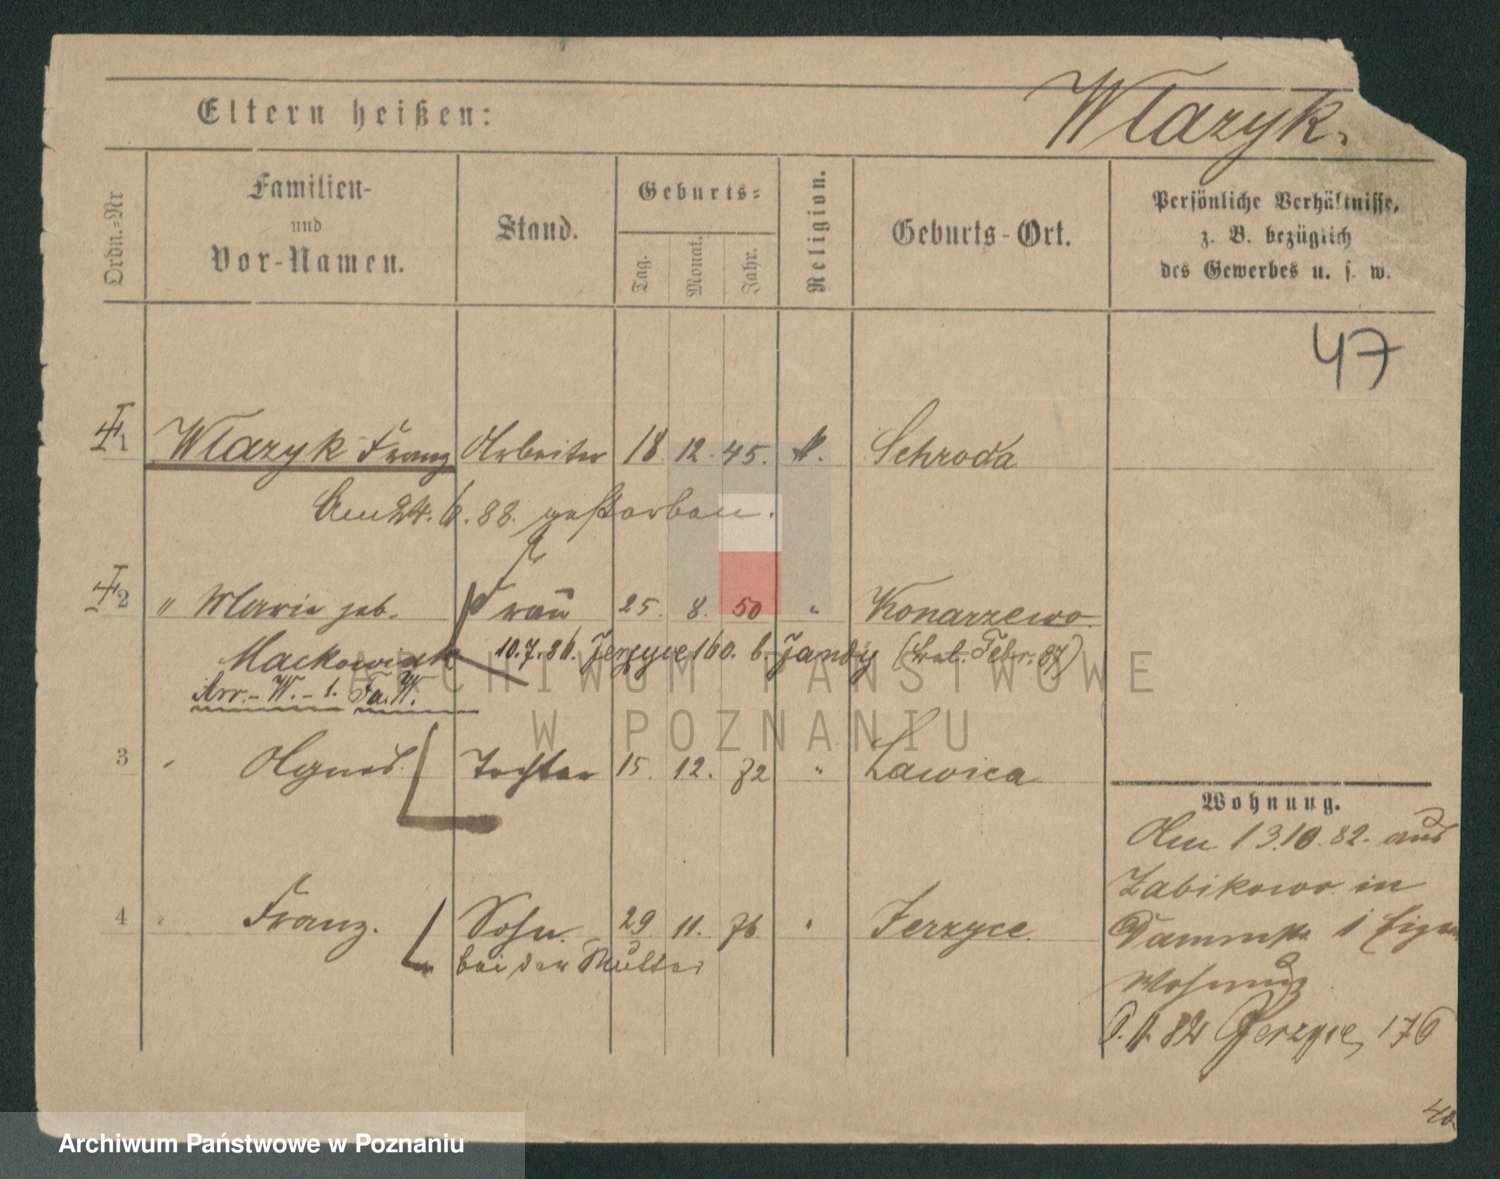 Eltern heißen:
Wlazyk.
Ordn.-Nr
Familien-
und
Vor-Namen.
Stand.
Geburts=
Tag.
Monat.
Jahr.
Religion.
Geburts-Ort.
Persönliche Verhältnisse,
z. B. bezüglich
des Gewerbes u. s. w.
47
1 Wlazyk Franz Arbeiter 18 12. 45. k. Schroda
Am 24. 6. 88. gestorben.
2 " Marie geb. Frau 25. 8. 50 " Konarzewo
Mackowiak 10.7.86. Jerzyce 160. b. Jandy Febr. 87)
3 " Agnes. Tochter 15. 12. 72 " Lawica
4 " Franz. Sohn. 29 11. 76 " Jerzyce.
bei der Mutter
Wohnung.
Am 13.10.82. aus
Zabikowo in
1 Eigen
Wohnung
Jerzyce, 176
40
ARCHIWUM PAŃSTWOWE
W POZNANIU
Archiwum Państwowe w Poznaniu